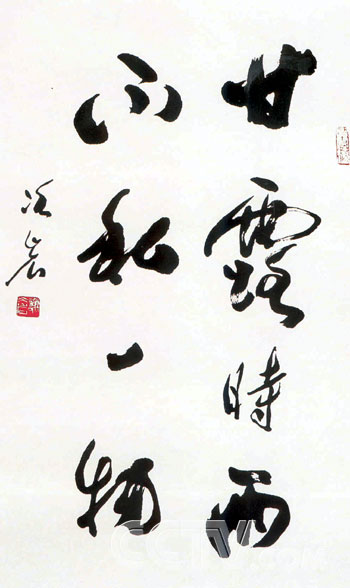 甘露時雨
不私一物
CCTV.com